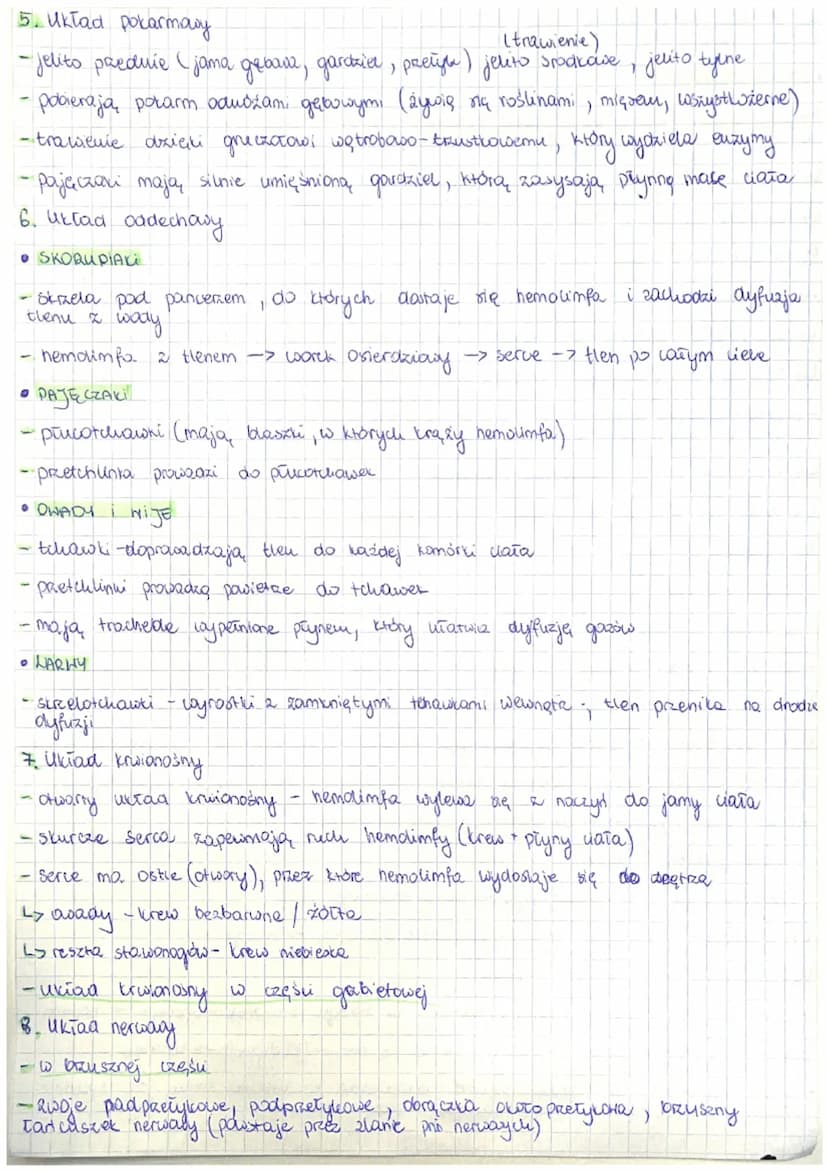 5. Układ pokarmowy
(trawienie)
- jelito przednie (jama gębowa, gardziel, przełyk) jelito środkowe, jelito tylne
- pobierają pokarm odnóżami gębowymi (żywią się roślinami, mięsem, wszystkożerne)
- trawienie dzięki gruczołowi wątrobowo-trzustkowemu, który wydziela enzymy
- pajęczaki mają silnie umięśnioną gardziel, którą zasysają płynną masę ciała
6. Układ oddechowy
• SKORUPIAKI
- skrzela pod pancerzem, do których dostaje się hemolimfa i zachodzi dyfuzja
tlenu z wody
- hemolimfa z tlenem -> worek osierdziowy -> serce -> tlen po całym ciele
• PAJĘCZAKI
- płucotchawki (mają blaszki, w których krąży hemolimfa)
- przetchlinka prowadzi do płucotchawek
• OWADY i WIJE
- tchawki - doprowadzają tlen do każdej komórki ciała
- przetchlinki prowadzą powietrze do tchawek
- mają tracheole wypełnione płynem, który ułatwia dyfuzję gazów
• LARWY
- skrzelotchawki - wyrostki z zamkniętymi tchawkami wewnątrz; tlen przenika na drodze
dyfuzji
7. Układ krwionośny
- otwarty układ krwionośny - hemolimfa wylewa się z naczyń do jamy ciała
- skurcze serca zapewniają ruch hemolimfy (krew + płyny ciała)
- serce ma ostie (otwory), przez które hemolimfa wydostaje się do
↳ owady - krew bezbarwna / żółta
↳ reszta stawonogów - krew niebieska
- układ krwionośny w części grzbietowej
8. Układ nerwowy
- w brzusznej części
- zwoje nadprzełykowe, podprzełykowe, obrączka okołoprzełykowa, brzuszny
łańcuszek nerwowy (powstaje przez zlanie pni nerwowych)